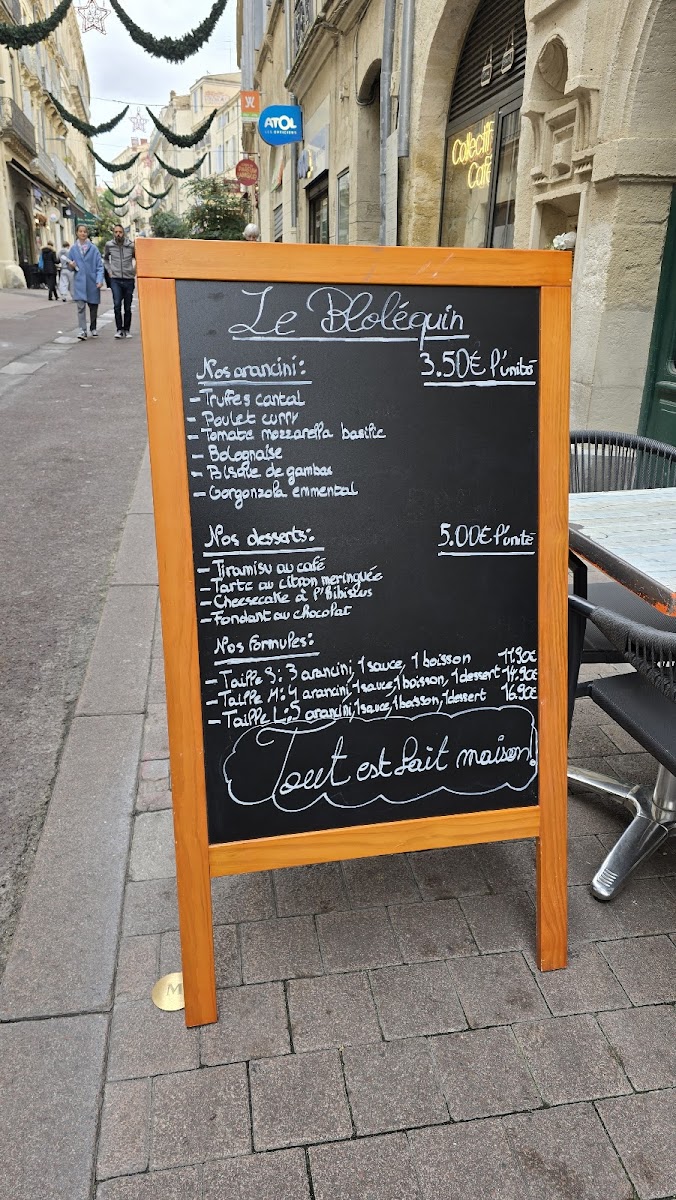 ATOL
LES OPTICIENS
Collectif
Café
Le Bloléquin
Nos arancini: 3.50€ l'unité
- Truffes cantal
- Poulet curry
- Tomate mozzarella basilic
- Bolognaise
- Bisque de gambas
- Gorgonzola emmental
Nos desserts: 5.00€ l'unité
- Tiramisu au café
- Tarte au citron meringuée
- Cheesecake à l'Hibiscus
- Fondant au chocolat
Nos formules:
- Taille S: 3 arancini, 1 sauce, 1 boisson 11.90€
- Taille M: 4 arancini, 1 sauce, 1 boisson, 1 dessert 14.90€
- Taille L: 5 arancini, 1 sauce, 1 boisson, 1 dessert 16.90€
Tout est fait maison!
M